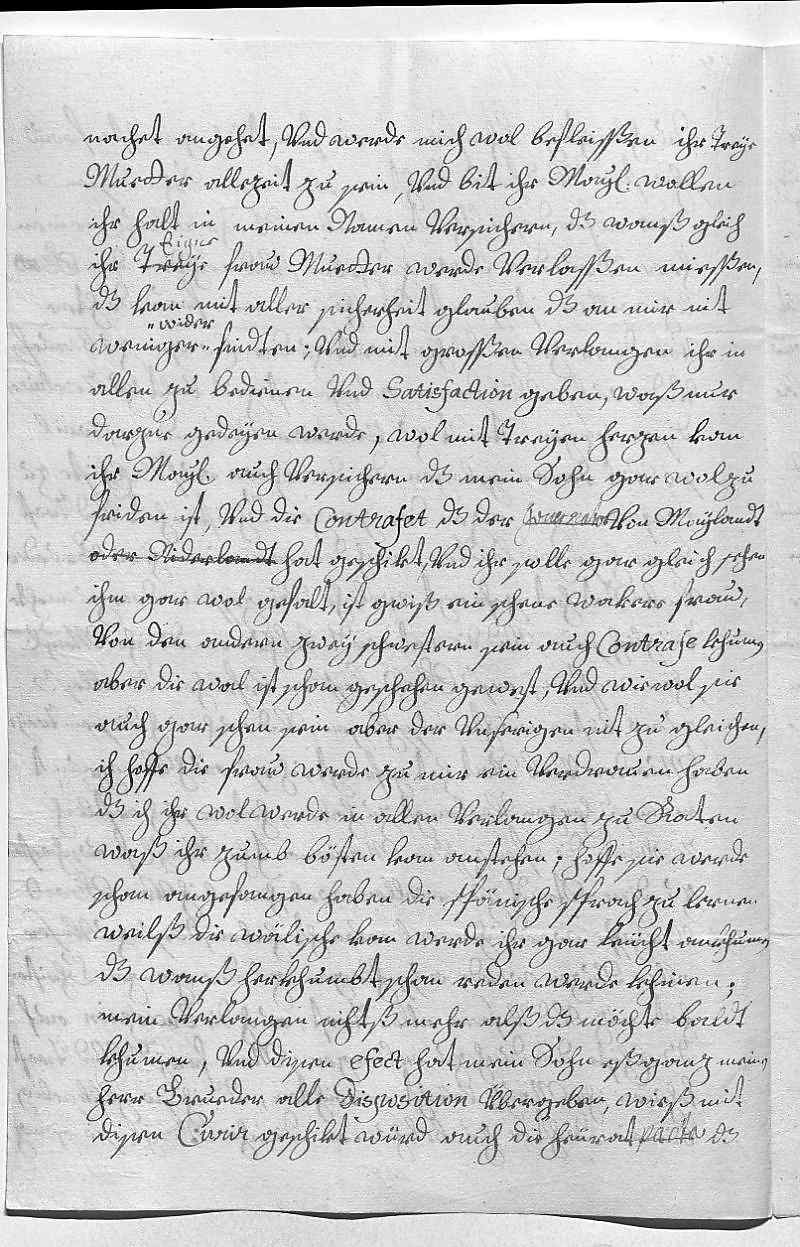 nachet angehet, Vnd werde mich wol befleissen ihr Treye
Muetter allezeit zu sein, Vnd bit ihr Mayl: wollen
ihr halt in meinen Namen Versichern, dz wanß gleich
Eigne
ihr Treye fraw Muetter werde Verlassen miessen,
dz kan mit aller sicherheit glauben dz an mir nit
wider
weniger findten; Vnd mit grossen Verlangen ihr in
allen zu bedienen Vnd Satisfaction geben, waß nur
darzue gedeyen werde, wol mit Treyen herzen kan
ihr Mayl: auch Versichern dz mein Sohn gar wol zu
friden ist, Vnd die Contrafet dz der Von Maylandt
oder Niderlandt hat geschikt, Vnd ihr solle gar gleich sehen
ihm gar wol gefalt, ist gwiß ein schene wakere fraw,
Von den andern zwey schwestern sein auch Contrafe khumen
aber die wal ist schan geschehen gewest, Vnd wie wol sie
auch gar schen sein aber der Vnserigen nit zu gleichen,
ich hoffe die fraw werde zu mir ein Verdrauen haben
dz ich ihr wol werde in allen Verlangen zu Raten
waß ihr zumb bösten kan anstehen; hoffe sie werde
schan angefangen haben die spänische sprach zu lernen
weilß die wälische kan werde ihr gar leücht ankhumen
dz wanß herkhumbt schan reden werde khinen;
mein Verlangen nichtß mehr alß dz möchte baldt
khumen, Vnd disen efect hat mein Sohn eß ganz mein
herr Brueder alle Disposition Übergeben, wieß mit
disen Curir geschikt würd auch die heürat pacta dz